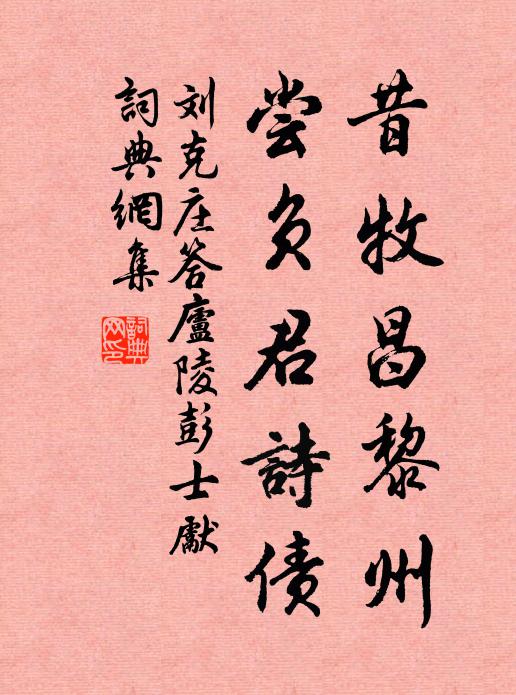 昔牧昌黎州
尝负君詩债
刘克庄答廬陵彭士獻
詞典網集
詞典网印